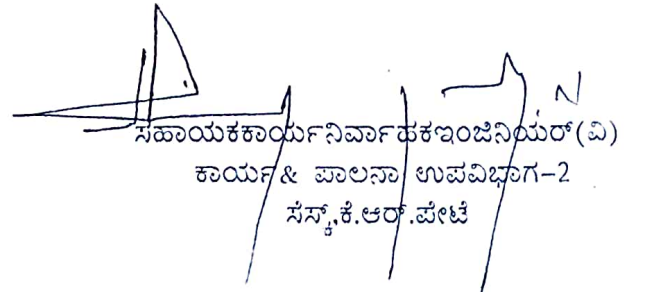 ಸಹಾಯಕಕಾರ್ಯನಿರ್ವಾಹಕಇಂಜಿನಿಯರ್(ವಿ)
ಕಾರ್ಯ& ಪಾಲನಾ ಉಪವಿಭಾಗ-2
ಸೆಸ್ಕ್.ಕೆ.ಆರ್.ಪೇಟೆ